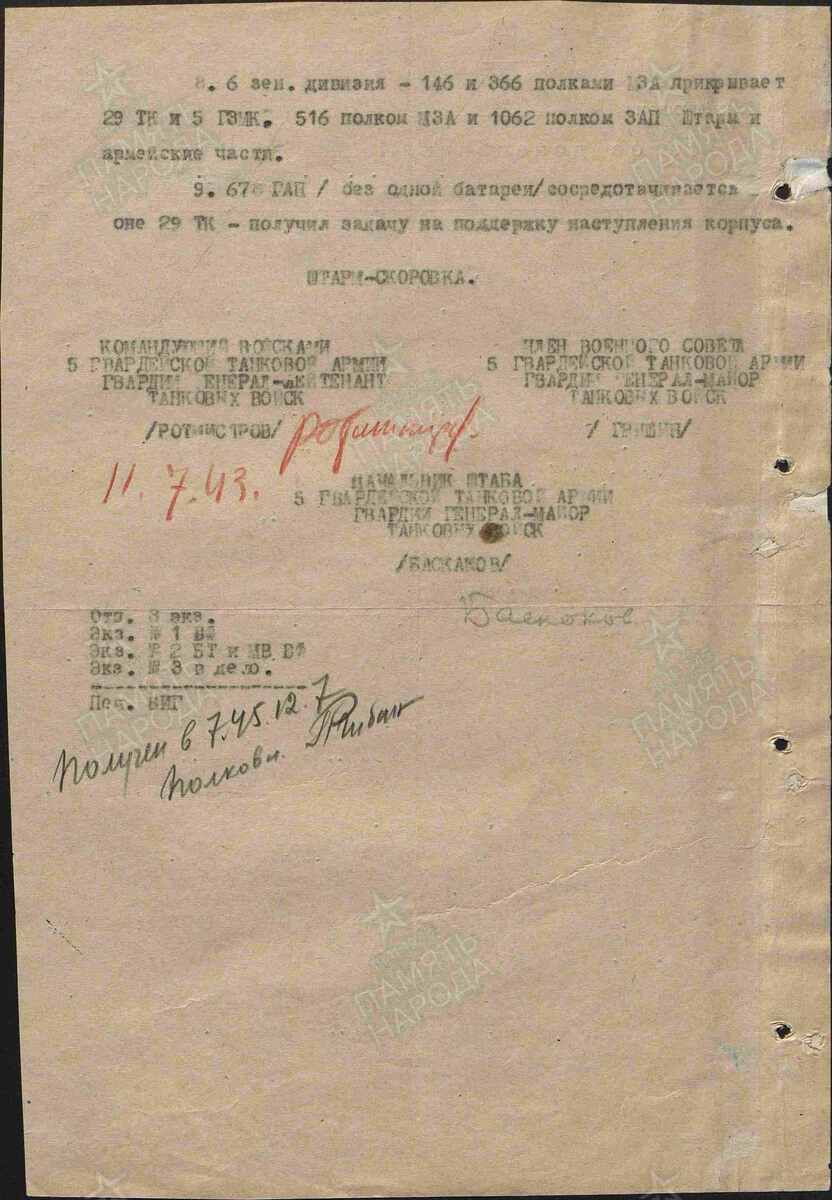 8. 6 зен. дивизия - 146 и 366 полками МЗА прикрывает
29 ТК и 5 ГЗМК. 516 полком МЗА и 1062 полком ЗАП Штарм и
армейские части.
9. 678 ГАП / без одной батареи/сосредотачивается
оне 29 ТК - получил задачу на поддержку наступления корпуса.
ШТАРМ-СКОРОВКА.
КОМАНДУЮЩИЙ ВОЙСКАМИ
5 ГВАРДЕЙСКОЙ ТАНКОВОЙ АРМИИ
ГВАРДИИ ГЕНЕРАЛ-ЛЕЙТЕНАНТ
ТАНКОВЫХ ВОЙСК
/РОТМИСТРОВ/
11.7.43.
ЧЛЕН ВОЕННОГО СОВЕТА
5 ГВАРДЕЙСКОЙ ТАНКОВОЙ АРМИИ
ГВАРДИИ ГЕНЕРАЛ-МАЙОР
ТАНКОВЫХ ВОЙСК
/ ГРИШИН/
НАЧАЛЬНИК ШТАБА
5 ГВАРДЕЙСКОЙ ТАНКОВОЙ АРМИИ
ГВАРДИИ ГЕНЕРАЛ-МАЙОР
ТАНКОВЫХ ВОЙСК
/БАСКАКОВ/
Баскаков
Отп. 3 экз.
Экз. № 1 ВФ
Экз. № 2 БТ и МВ ВФ
Экз. № 3 в дело.
Печ. ВИГ
Получен в 7.45.12.7
Полковн.
ПАМЯТЬ НАРОДА